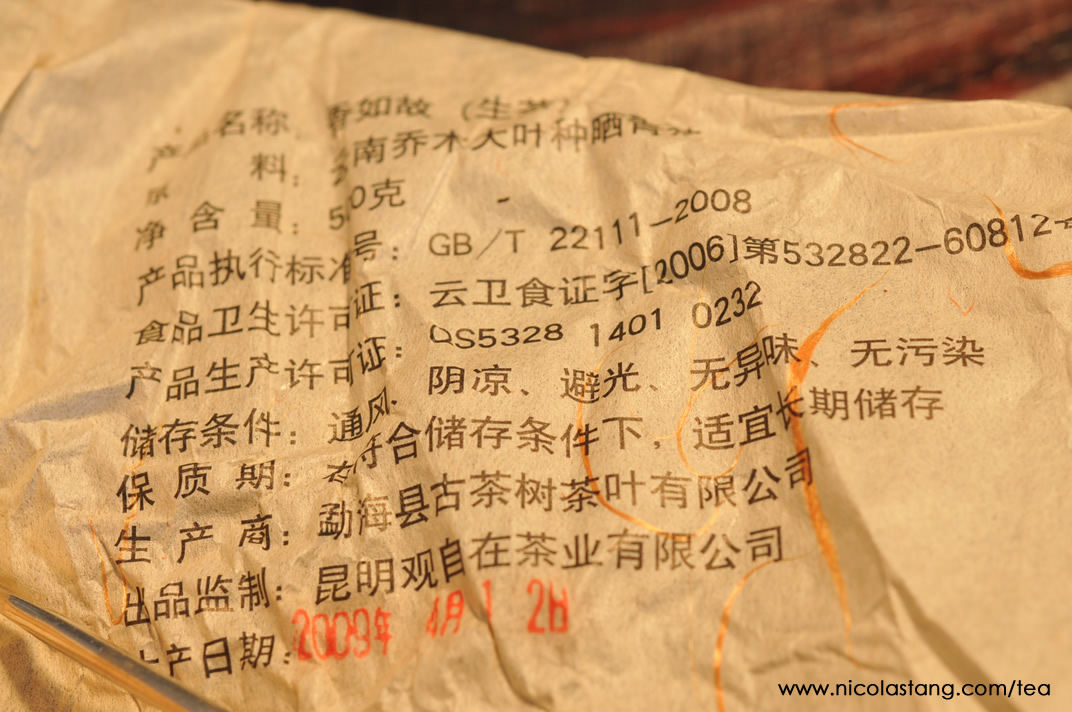 名称 如故（生茶）
料： 南乔木大叶种晒青
净含量：50克
产品执行标准号：GB/T 22111-2008
食品卫生许可证：云卫食证字[2006]第532822-60812号
产品生产许可证：QS5328 1401 0232
储存条件：通风、阴凉、避光、无异味、无污染
保质期：在符合储存条件下，适宜长期储存
生产商：勐海县古茶树茶叶有限公司
出品监制：昆明观自在茶业有限公司
生产日期：2009年 4月12日
www.nicolastang.com/tea